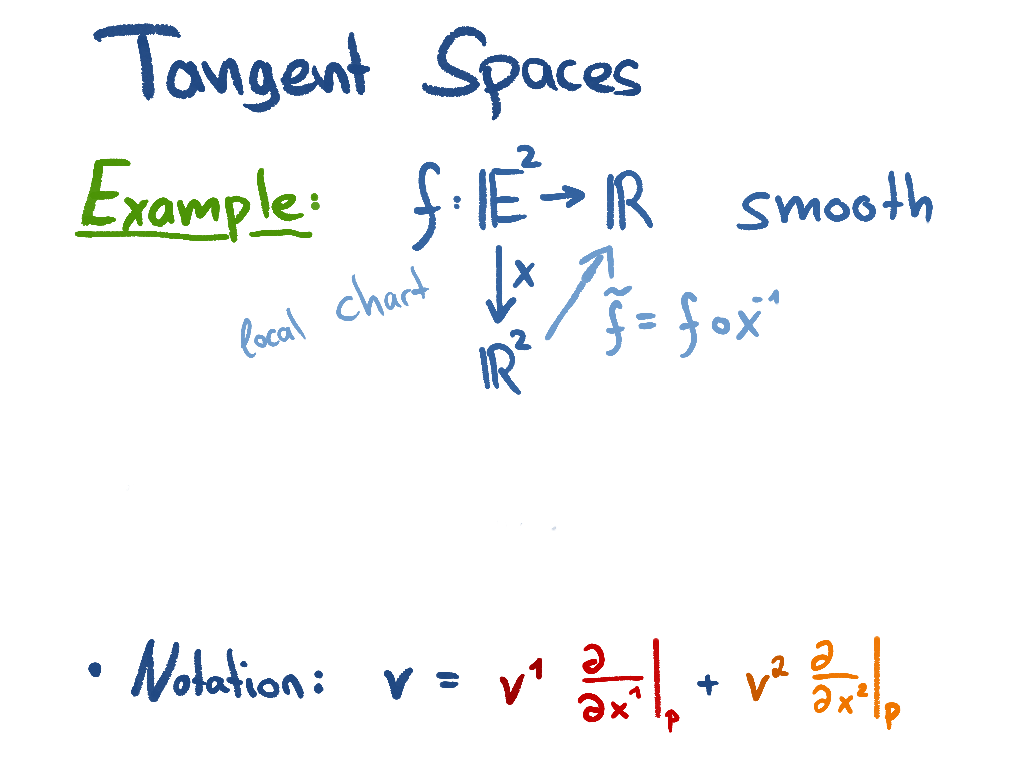 Tangent Spaces
Example: f: 𝔼² → ℝ smooth
local chart x f̃ = f ∘ x⁻¹
ℝ²
• Notation: v = v¹ ∂/∂x¹|ₚ + v² ∂/∂x²|ₚ